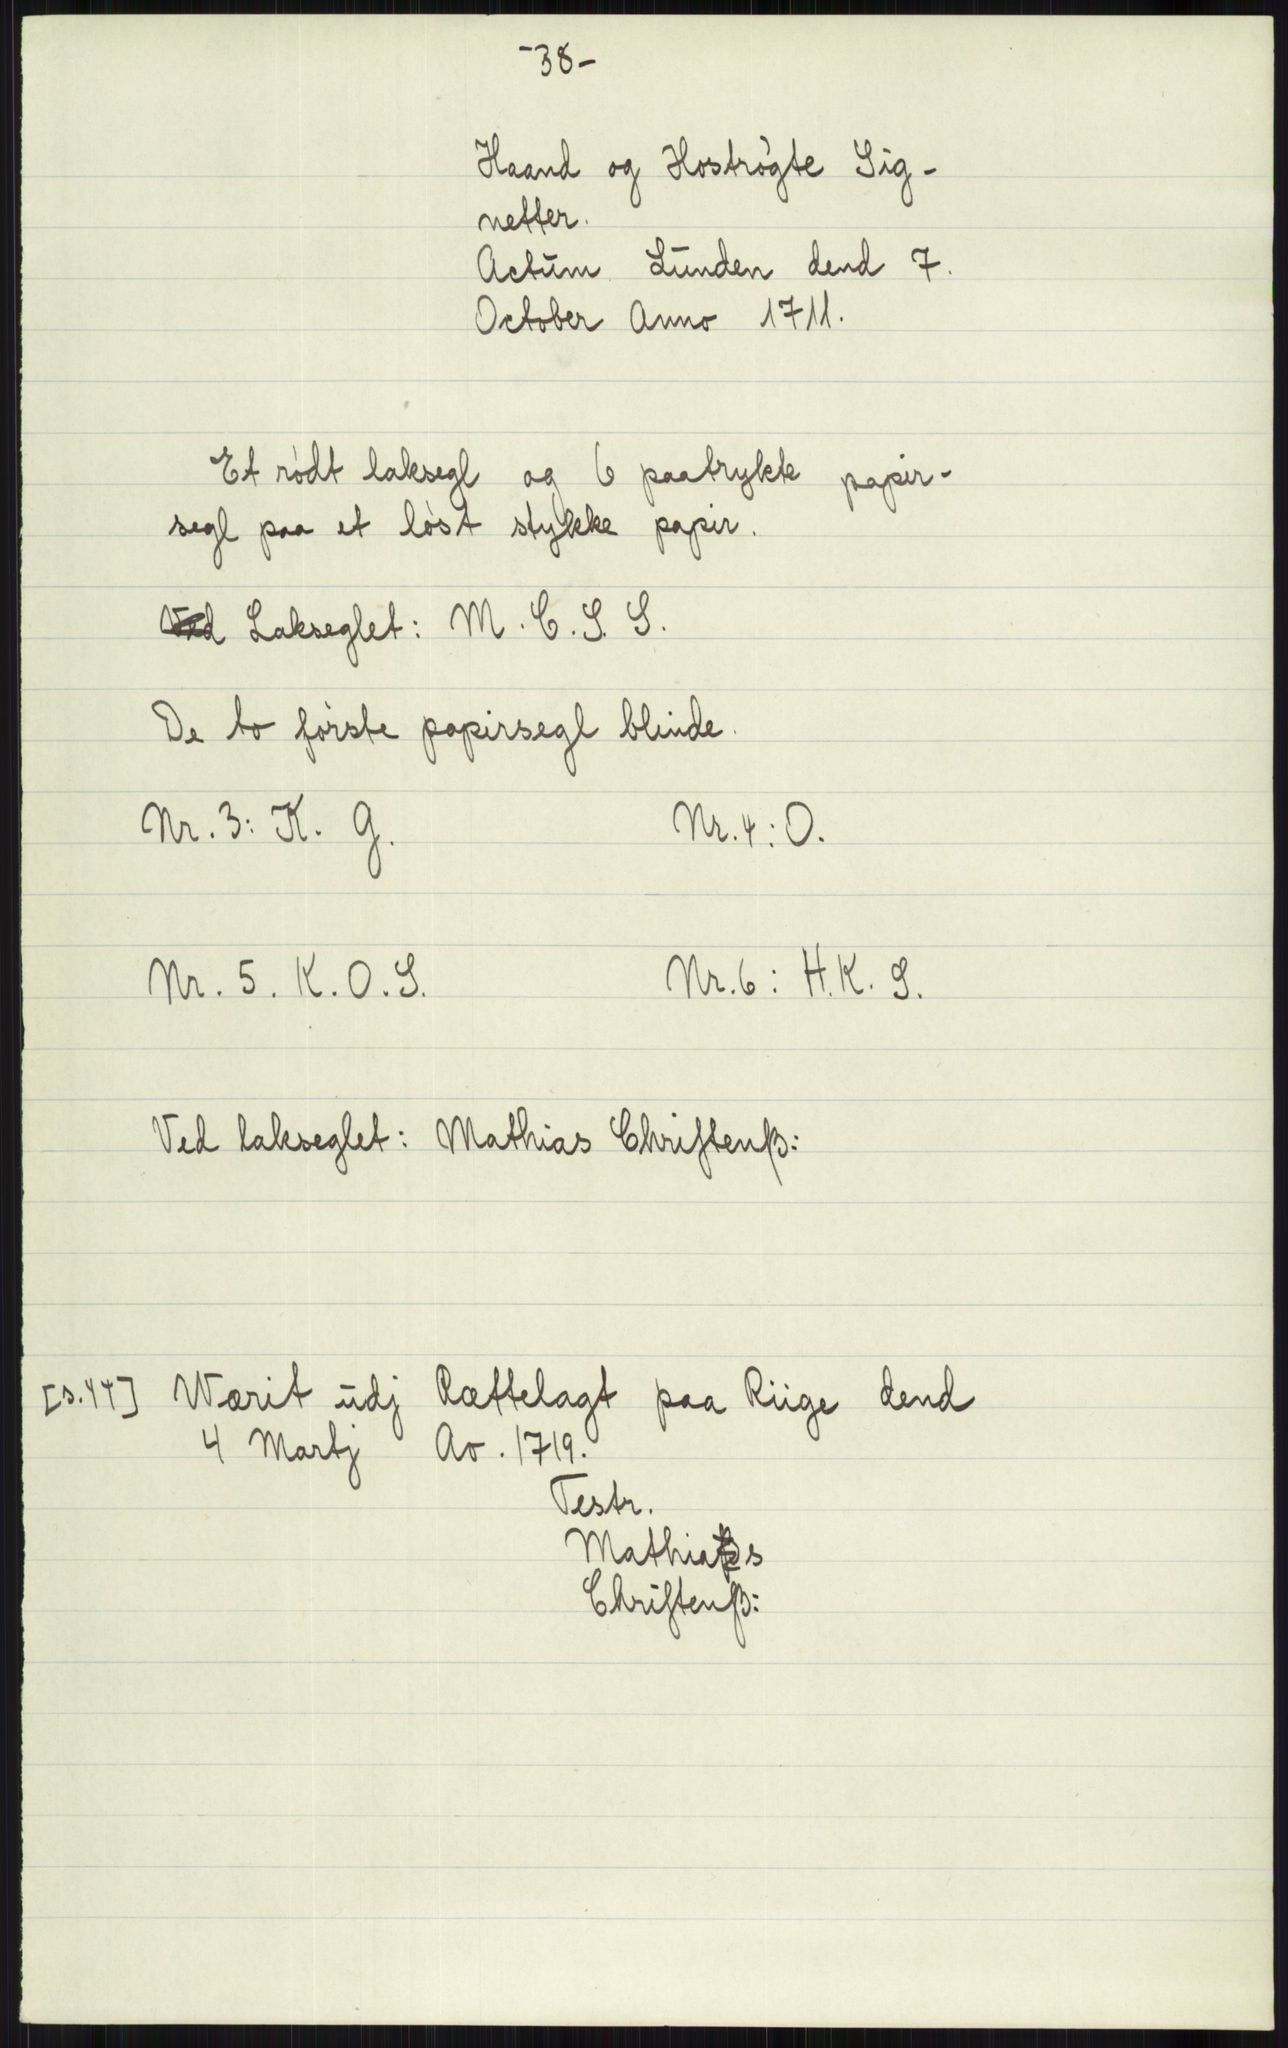 -38-
Haand og Hoströgte Sig-
netter.
Actūm Lūnden dend 7.
October Anno 1711.
Et rödt laksegl og 6 paatrykte papir-
segl paa et löst stykke papir.
Lakseglet: M. C. S. S.
De to förste papirsegl blinde.
Nr. 3: K. G. Nr. 4: O.
Nr. 5. K. O. S. Nr. 6: H. K. S.
Ved lakseglet: Mathias Christenß:
[s. 44] Wærit ūdj Rættelagt paa Riige dend
4 Martj Ao. 1719.
Testr.
Mathias
Christenß: